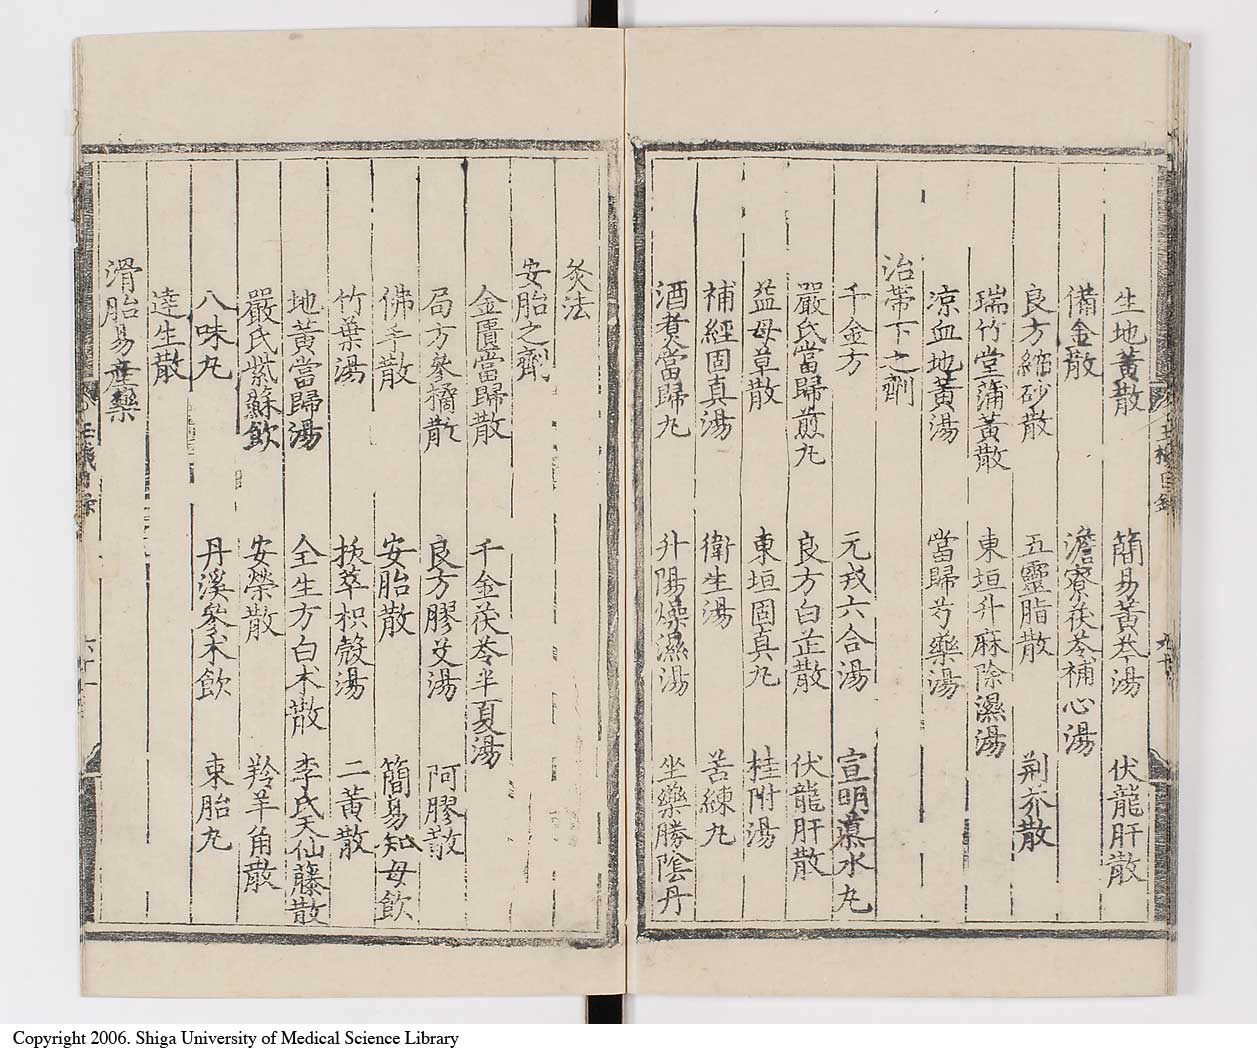 生地黃散 簡易黃芩湯 伏龍肝散
備金散 澹寮茯苓補心湯
良方縮砂散 五靈脂散 荊芥散
瑞竹堂蒲黃散 東垣升麻除濕湯
凉血地黃湯 當歸芍藥湯
治帶下之劑
千金方 元戎六合湯 宣明葶水丸
嚴氏當歸煎丸 良方白芷散 伏龍肝散
益母草散 東垣固真丸 桂附湯
補經固真湯 衛生湯 苦練丸
酒煑當歸丸 升陽燥濕湯 坐藥勝陰丹
灸法
安胎之劑
金匱當歸散 千金茯苓半夏湯
局方參橘散 良方膠艾湯 阿膠散
佛手散 安胎散 簡易知母飲
竹葉湯 拔萃枳殼湯 二黃散
地黃當歸湯 全生方白木散 李氏天仙藤散
嚴氏紫蘇飲 安榮散 羚羊角散
八味丸 丹溪參木飲 東胎丸
達生散
滑胎易產藥
六十一
Copyright 2006. Shiga University of Medical Science Library